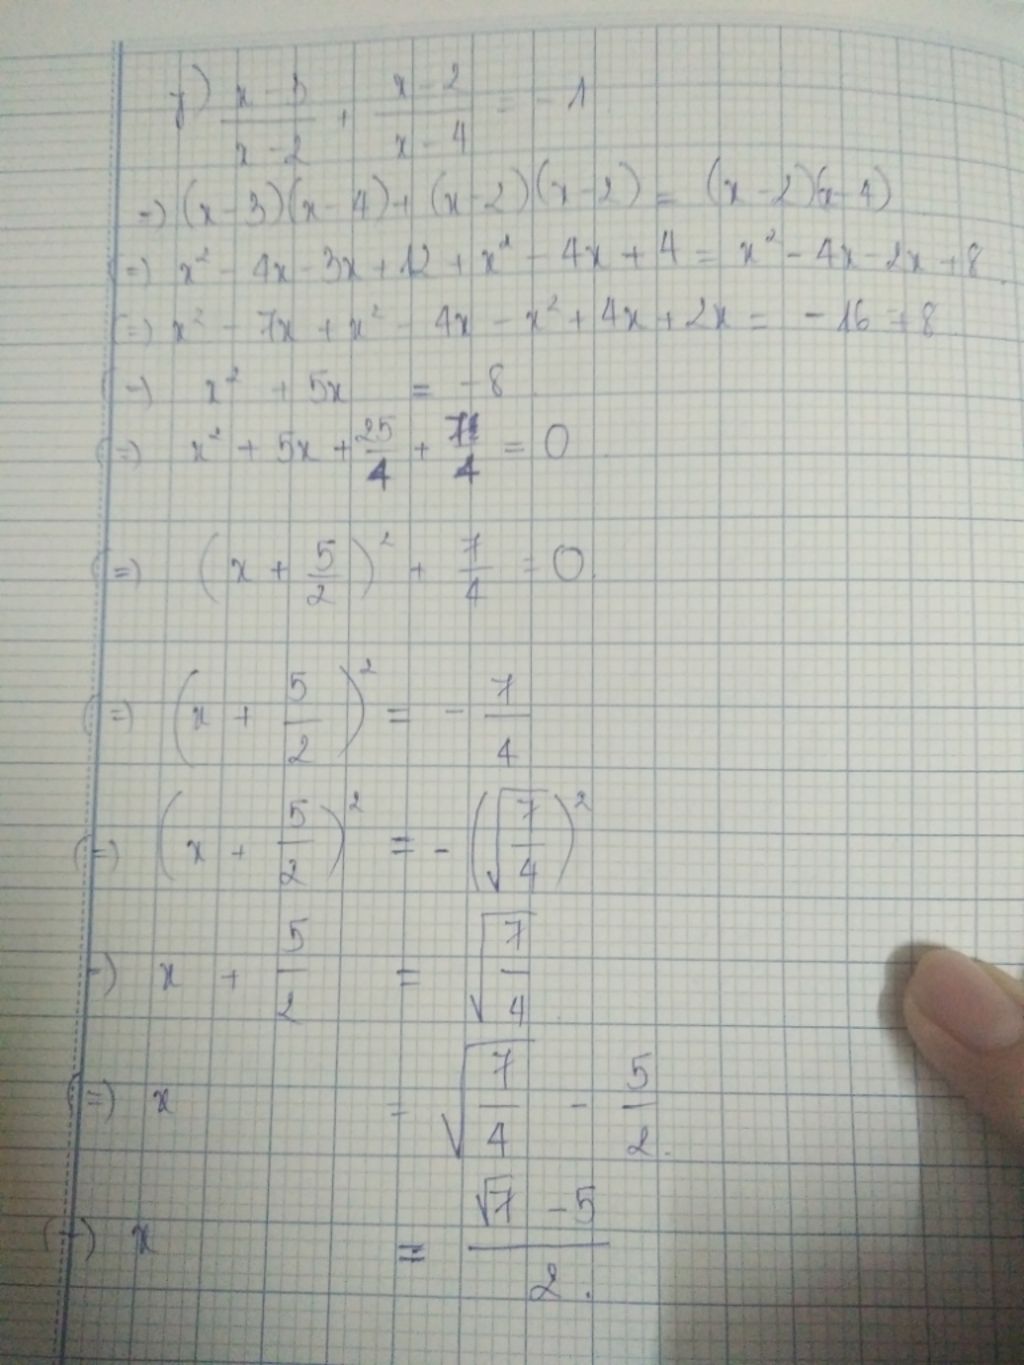 y) (x - 3)/(x - 2) + (x - 2)/(x - 4) = - 1
=> (x - 3)(x - 4) + (x - 2)(x - 2) = (x - 2)(x - 4)
=> x² - 4x - 3x + 12 + x² - 4x + 4 = x² - 4x - 2x + 8
(=) x² - 7x + x² - 4x - x² + 4x + 2x = - 16 + 8
(=) x² + 5x = - 8
(=) x² + 5x + 25/4 + 7/4 = 0
(=) (x + 5/2)² + 7/4 = 0
(=) (x + 5/2)² = - 7/4
(=) (x + 5/2)² = - (√(7/4))²
=) x + 5/2 = √(7/4)
(=) x = √(7/4) - 5/2.
(=) x = (√7 - 5)/2.